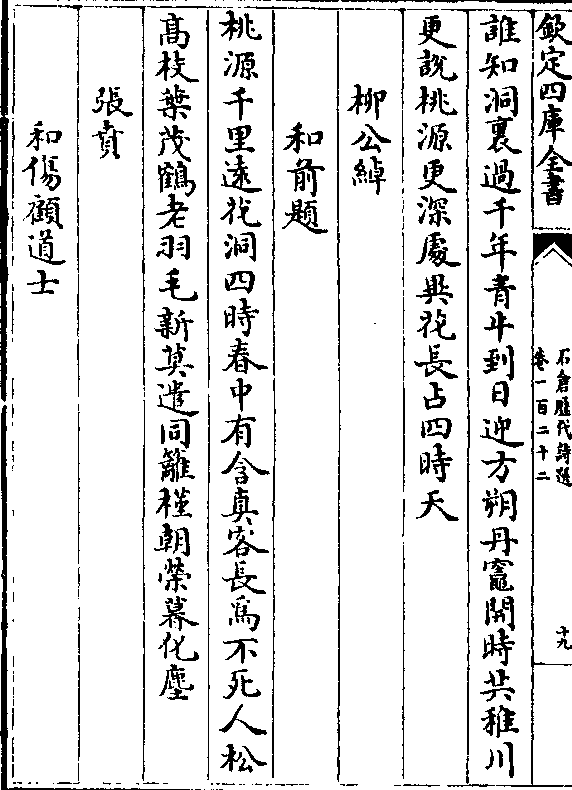 欽定四庫全書
石倉歷代詩選
卷一百二十二
十九
誰知洞裏過千年青牛到日迎方朔丹竈開時共稚川
更說桃源更深處與花長占四時天
柳公綽
和前題
桃源千里遠花洞四時春中有含真客長為不死人松
高枝葉茂鶴老羽毛新莫遣同籬槿朝榮暮化塵
張賁
和傷顧道士